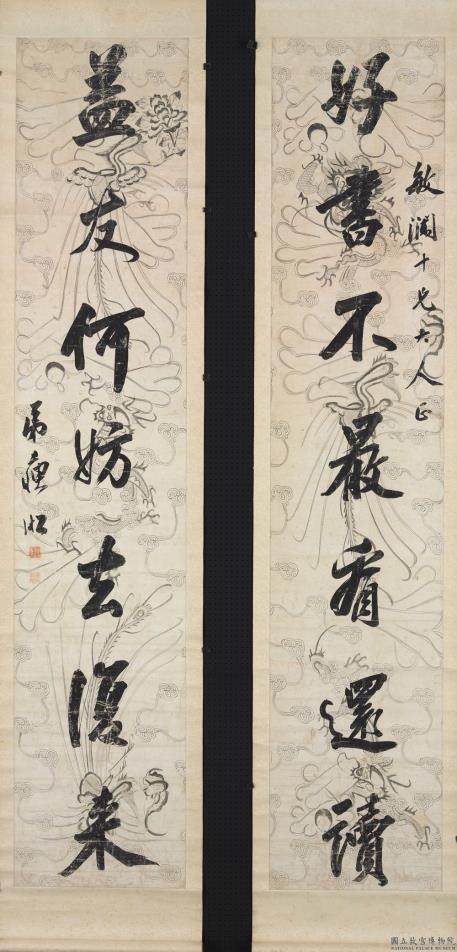 敏十兄大人正
好書不厭看還讀
益友何妨去復來
弟
國立故宮博物院
NATIONAL PALACE MUSEUM